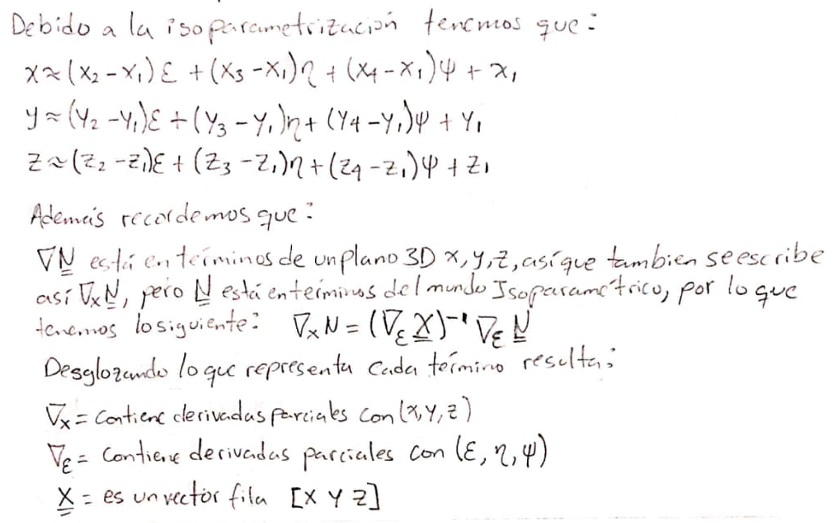 Debido a la isoparametrización tenemos que:
x≈(x₂-x₁)ε+(x₃-x₁)η+(x₄-x₁)ψ+x₁
y≈(y₂-y₁)ε+(y₃-y₁)η+(y₄-y₁)ψ+y₁
z≈(z₂-z₁)ε+(z₃-z₁)η+(z₄-z₁)ψ+z₁
Además recordemos que:
∇N está en términos de un plano 3D x,y,z, así que tambien se escribe
así ∇ₓN, pero N está en términos del mundo Isoparamétrico, por lo que
tenemos lo siguiente: ∇ₓN=(∇εX)⁻¹∇εN
Desglozando lo que representa cada término resulta:
∇ₓ= Contiene derivadas parciales con (x,y,z)
∇ε= Contiene derivadas parciales con (ε,η,ψ)
X = es un vector fila [X Y Z]